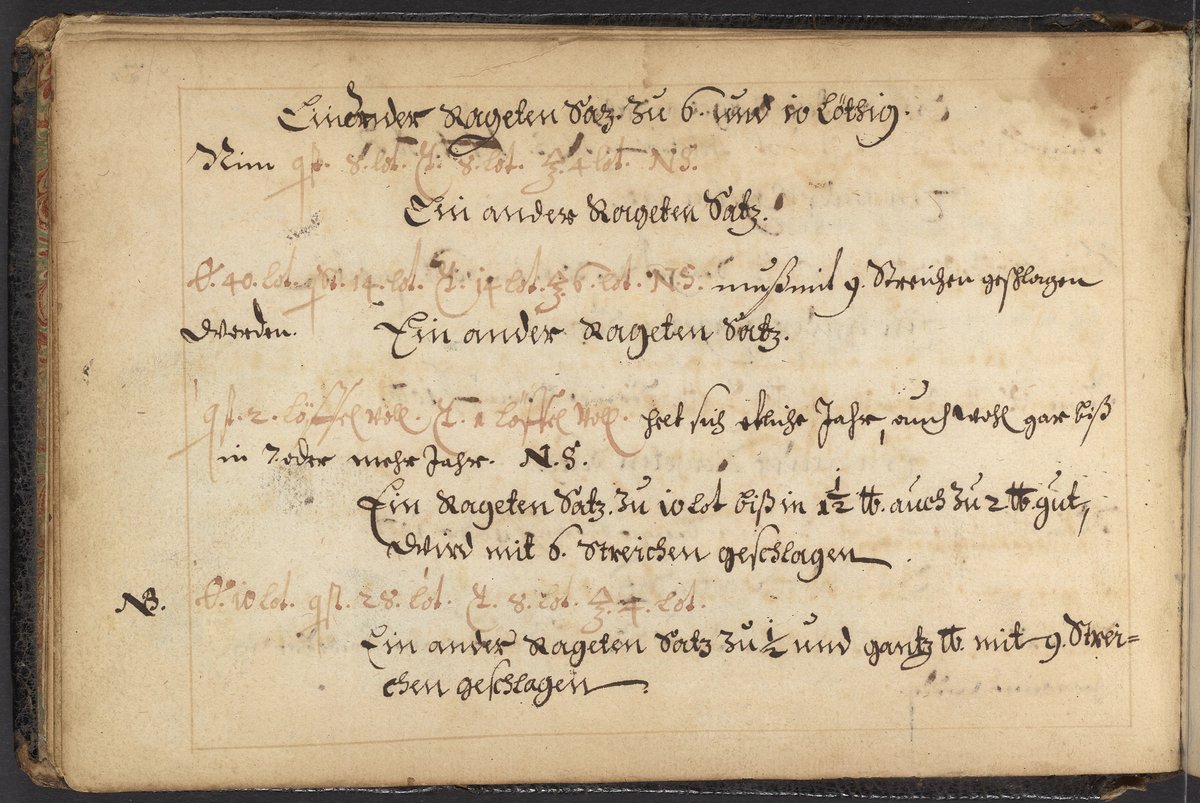 Ein ander Rageten Satz. zu 6. und 10 Löthig.
Nim qst. 8. lot. C: 8. lot. Z. 4 lot. NS.
Ein ander Rageten Satz.
40. Lot. qst. 14. Lot. C: 14 Lot. Z 6. Lot. N.S. muß mit 9. Streichen geschlagen
werden. Ein ander Rageten Satz.
qst. 2. Löffel voll. C. 1 Löffel voll. helt sich etliche Jahr, auch wohl gar biß
in 7. oder mehr Jahr. N.S.
Ein Rageten Satz. zu 10 Lot biß in 1½ ℔. auch zu 2. ℔. gut,
wird mit 6. Streichen geschlagen.
NB. 10 Lot. qst. 28. Lot. C. 8. Lot. Z. 4. Lot.
Ein ander Rageten Satz zu ½ und gantz ℔. mit 9. Strei=
chen geschlagen.